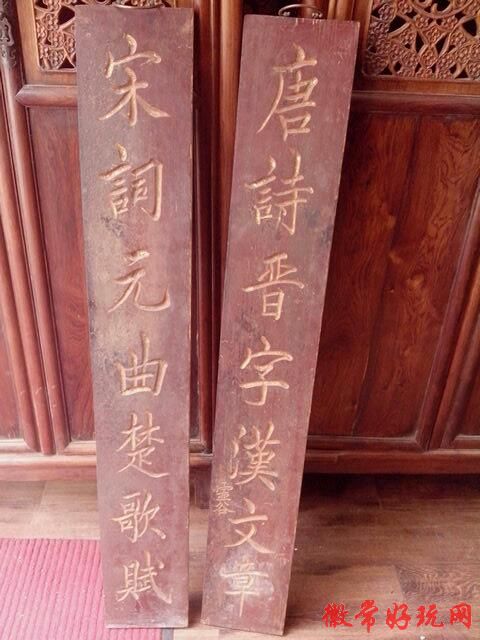 唐詩晋字漢文章
宋詞元曲楚歌賦
徽常好玩网